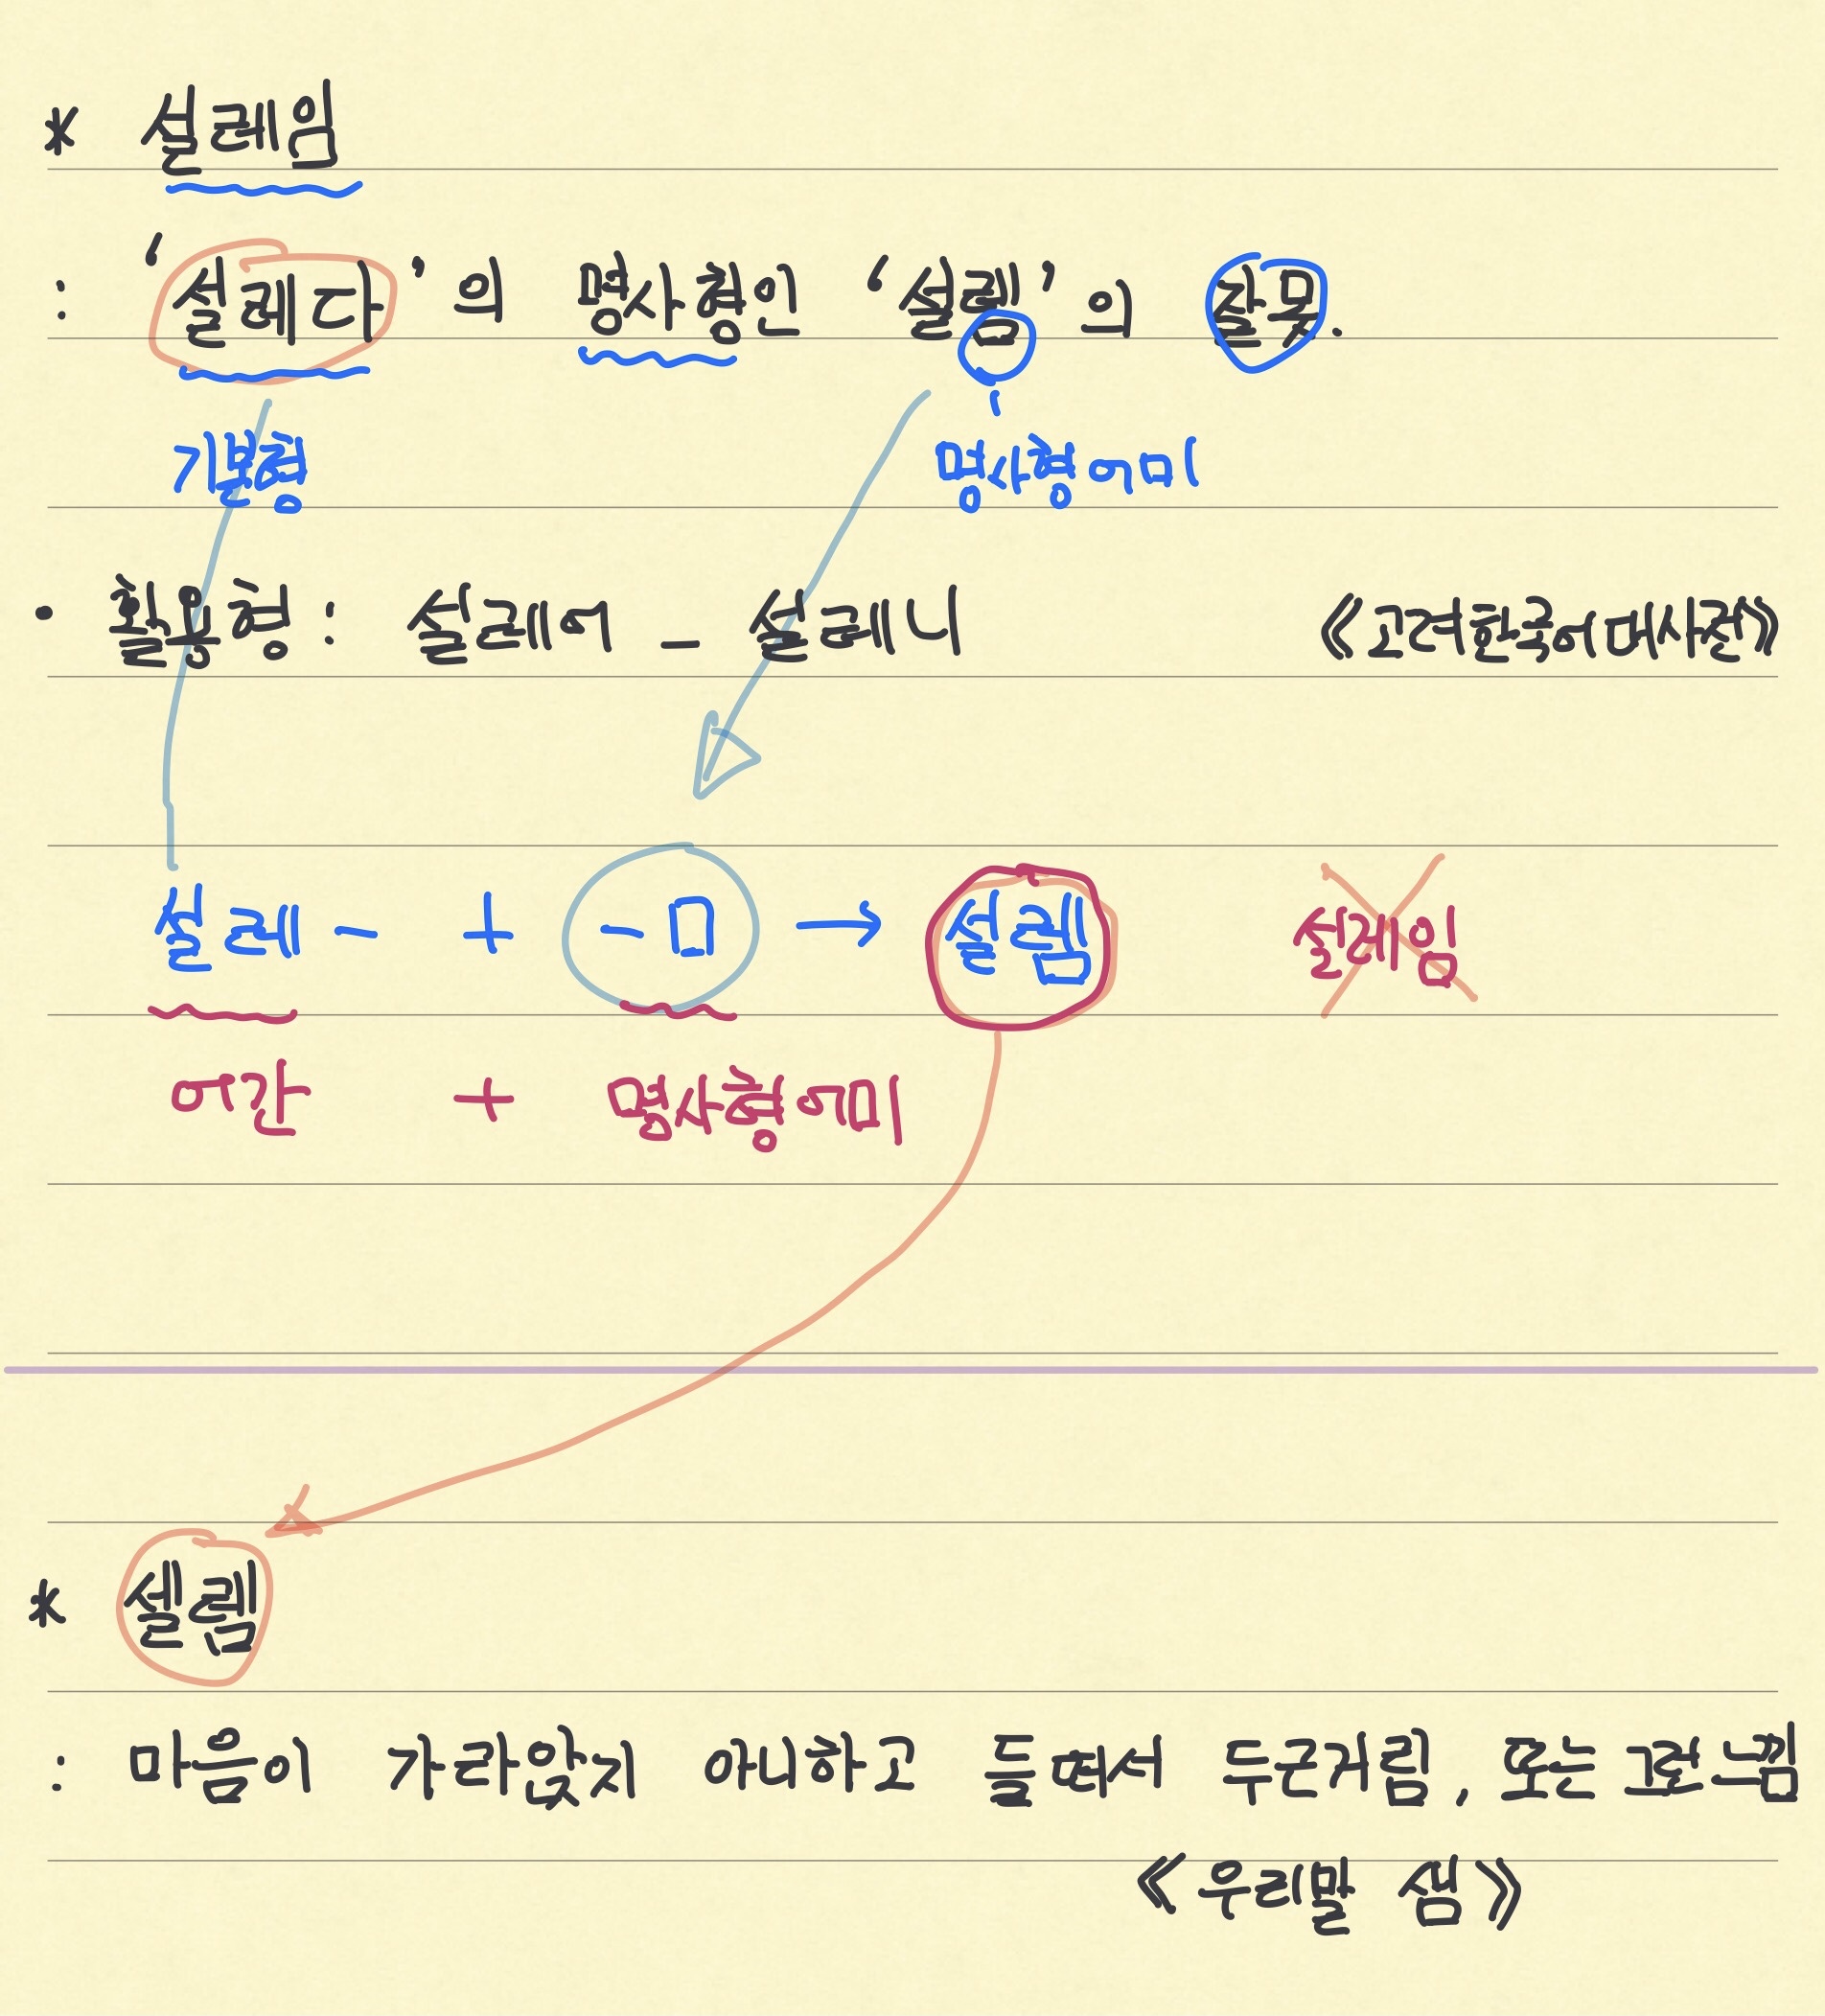 * 설레임
: '설레다'의 명사형인 '설렘'의 잘못.
기본형 명사형 어미
• 활용형 : 설레어 - 설레니 《고려한국어대사전》
설레- + -ㅁ → 설렘 설레임
어간 + 명사형 어미
* 셀렘
: 마음이 가라앉지 아니하고 들떠서 두근거림, 또는 그런 느낌
《우리말 샘》